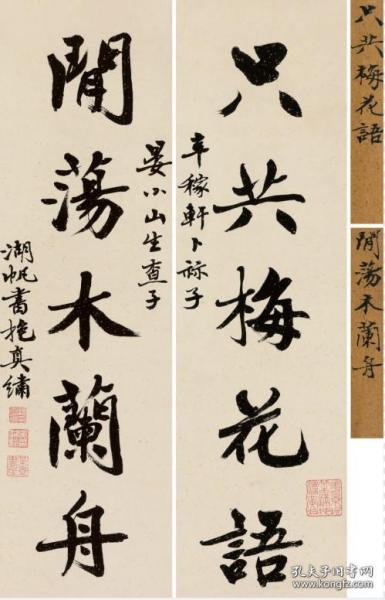 只共梅花語
辛稼軒卜祘子
閒蕩木蘭舟
晏小山生查子
湖帆書抱真繡
只共梅花語
閒蕩木蘭舟
孔夫子旧书网
www.kongfz.com